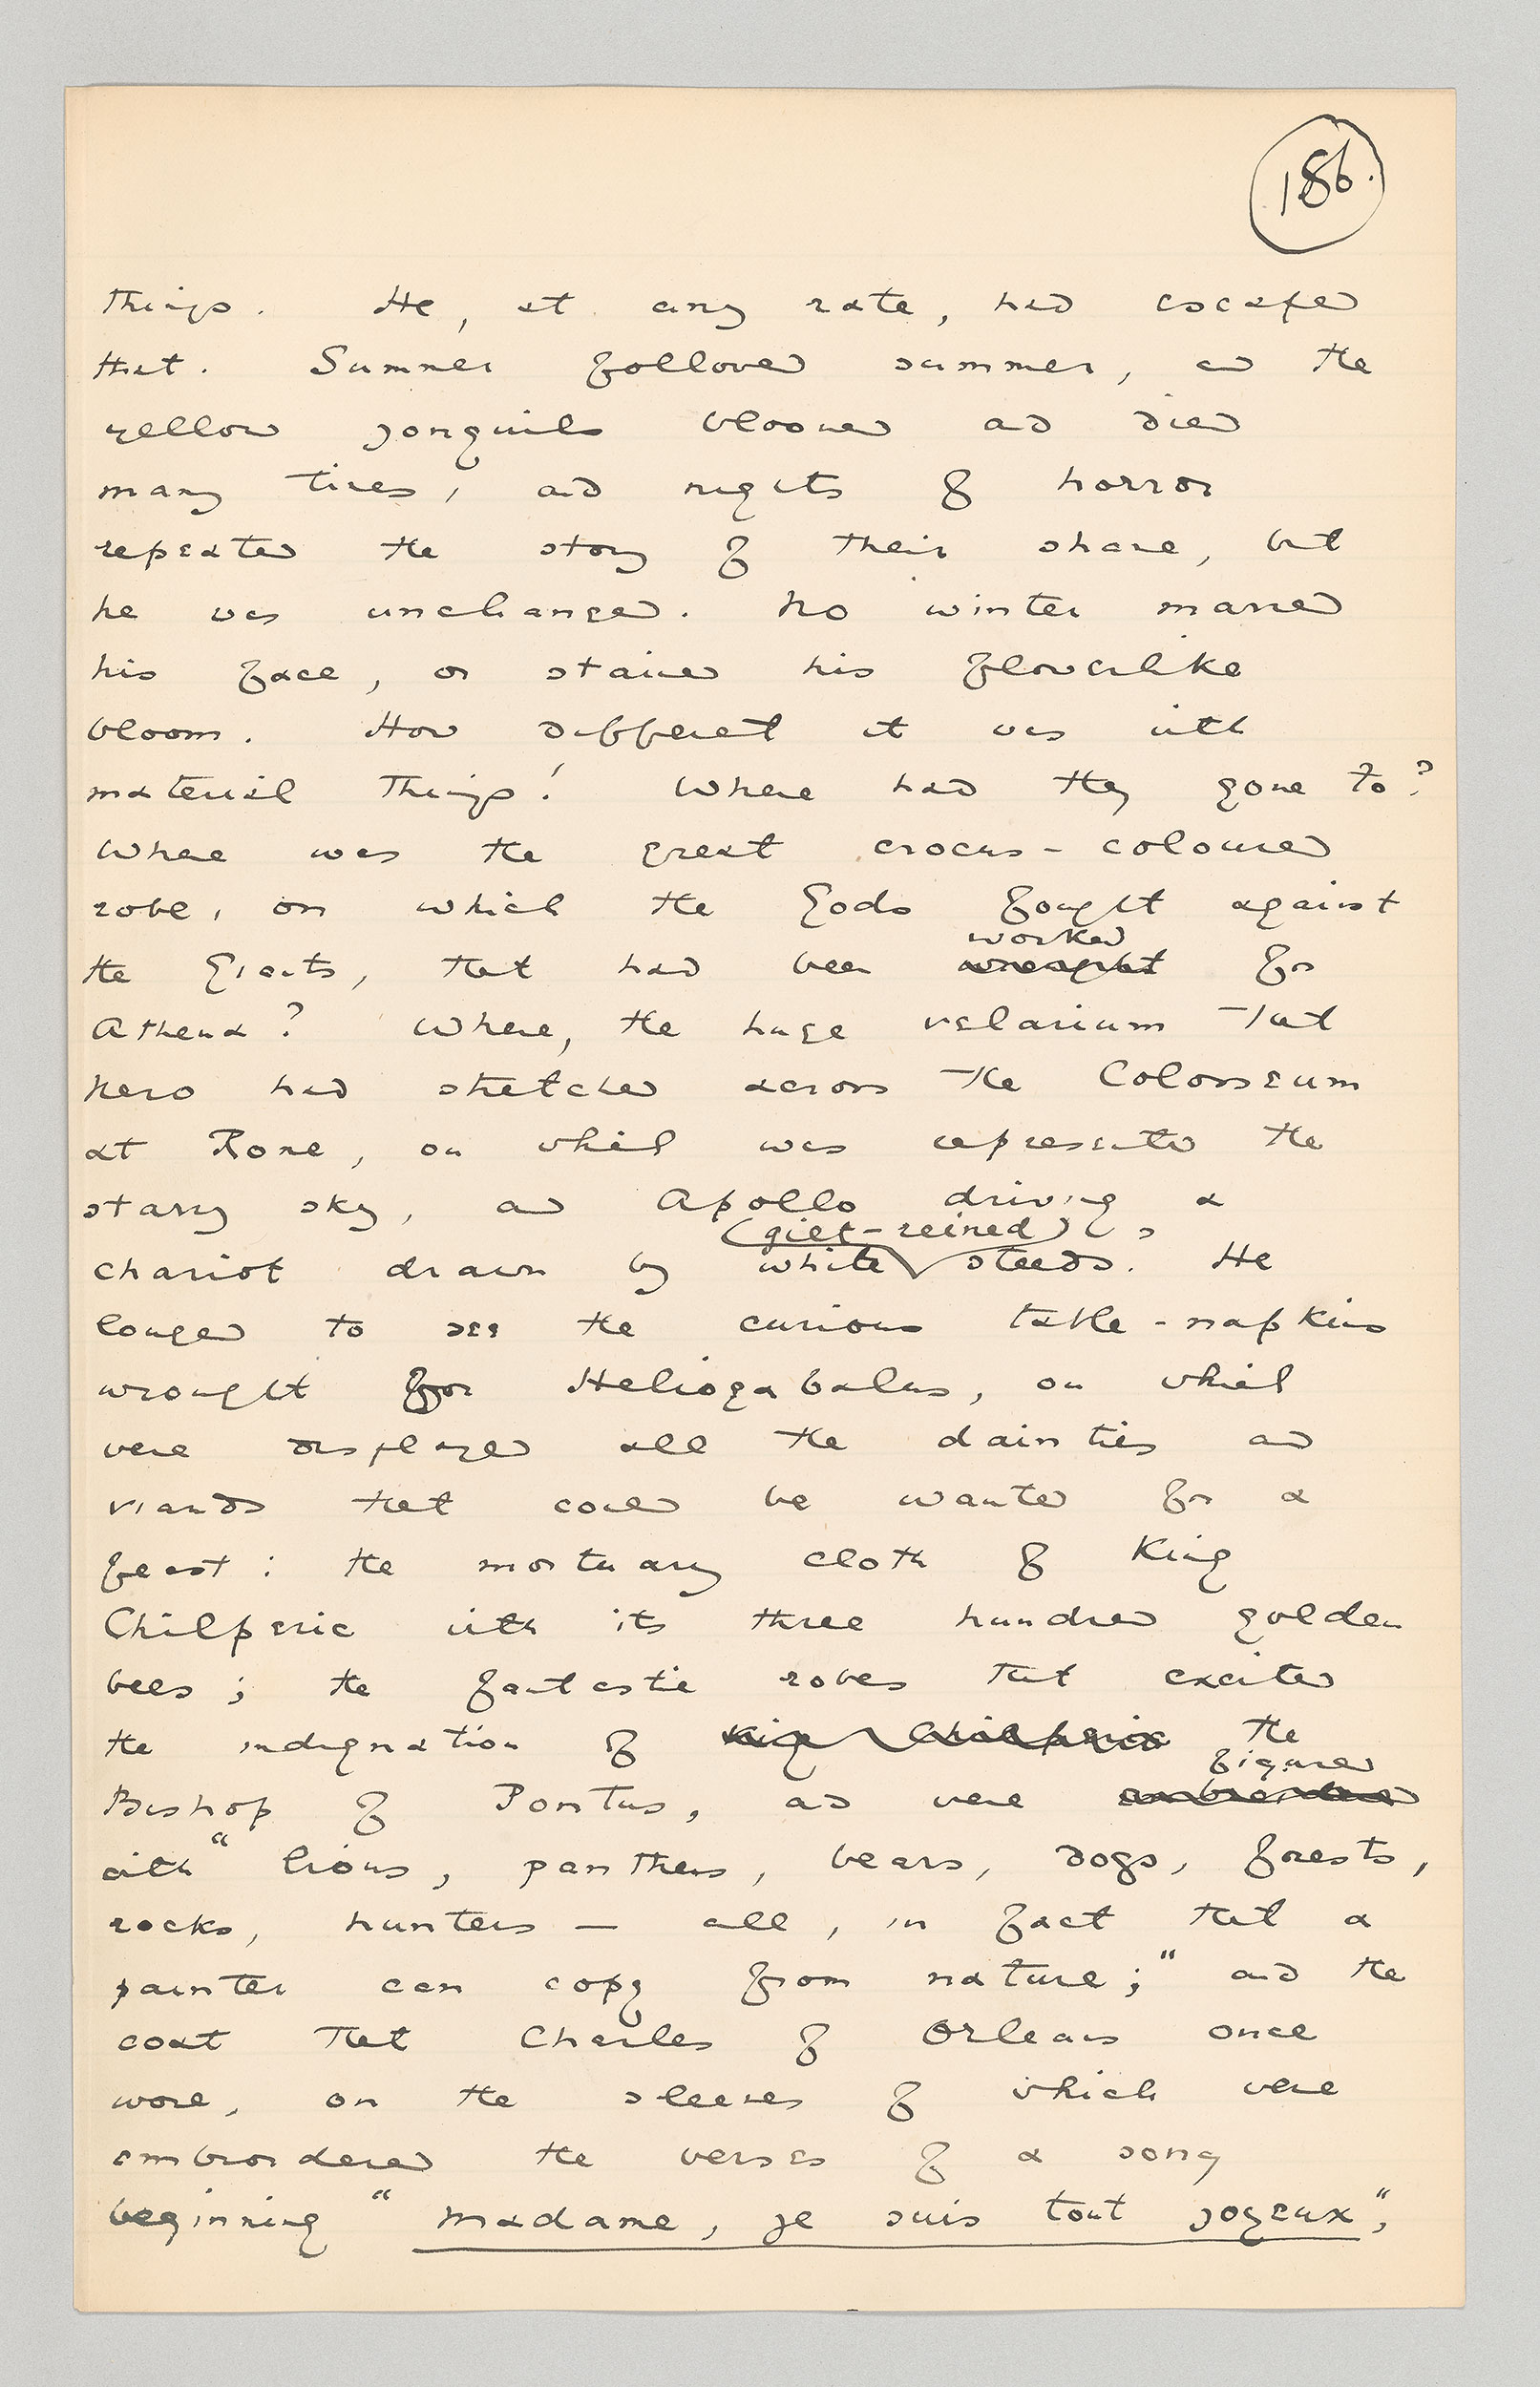 186.
things. He, at any rate, had escaped
that. Summer followed summer, and the
yellow jonquils bloomed and died
many times, and nights of horror
repeated the story of their shame, but
he was unchanged. No winter marred
his face, or stained his flowerlike
bloom. How different it was with
material things! Where had they gone to?
Where was the great crocus-coloured
robe, on which the Gods fought against
worked
the Giants, that had been wrought for
Athena? Where, the huge velarium that
Nero had stretched across the Colosseum
at Rome, on which was represented the
starry sky, and Apollo driving a
(gilt-reined)
chariot drawn by white steeds? He
longed to see the curious table-napkins
wrought for Heliogabalus, on which
were displayed all the dainties and
viands that could be wanted for a
feast: the mortuary cloth of King
Chilperic with its three hundred golden
bees; the fantastic robes that excited
the indignation of King Chilperic the
figured
Bishop of Pontus, and were embroidered
with "lions, panthers, bears, dogs, forests,
rocks, hunters — all, in fact that a
painter can copy from nature;" and the
coat that Charles of Orleans once
wore, on the sleeves of which were
embroidered the verses of a song
beginning "Madame, je suis tout joyeux",